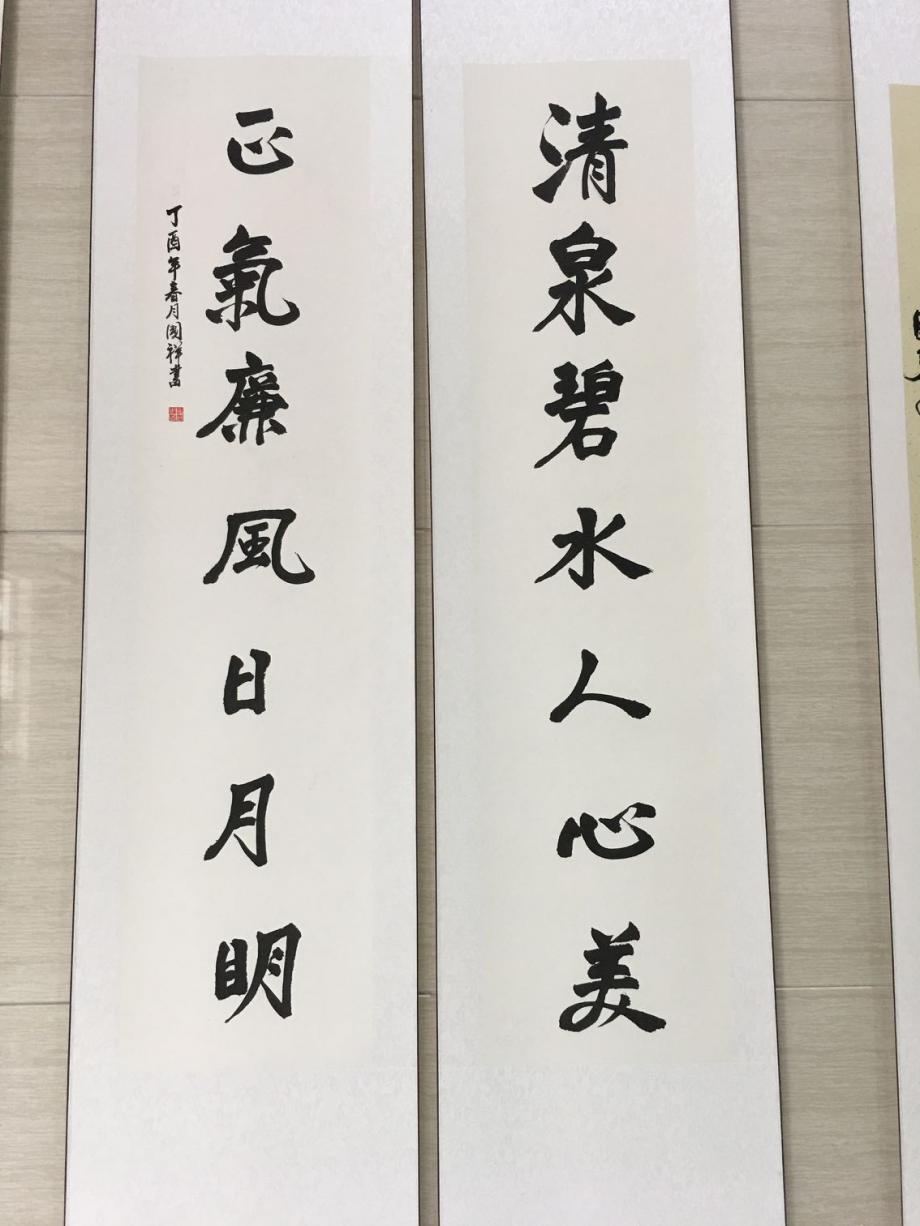 清泉碧水人心美
正氣廉風日月明
丁酉年春月國祥書